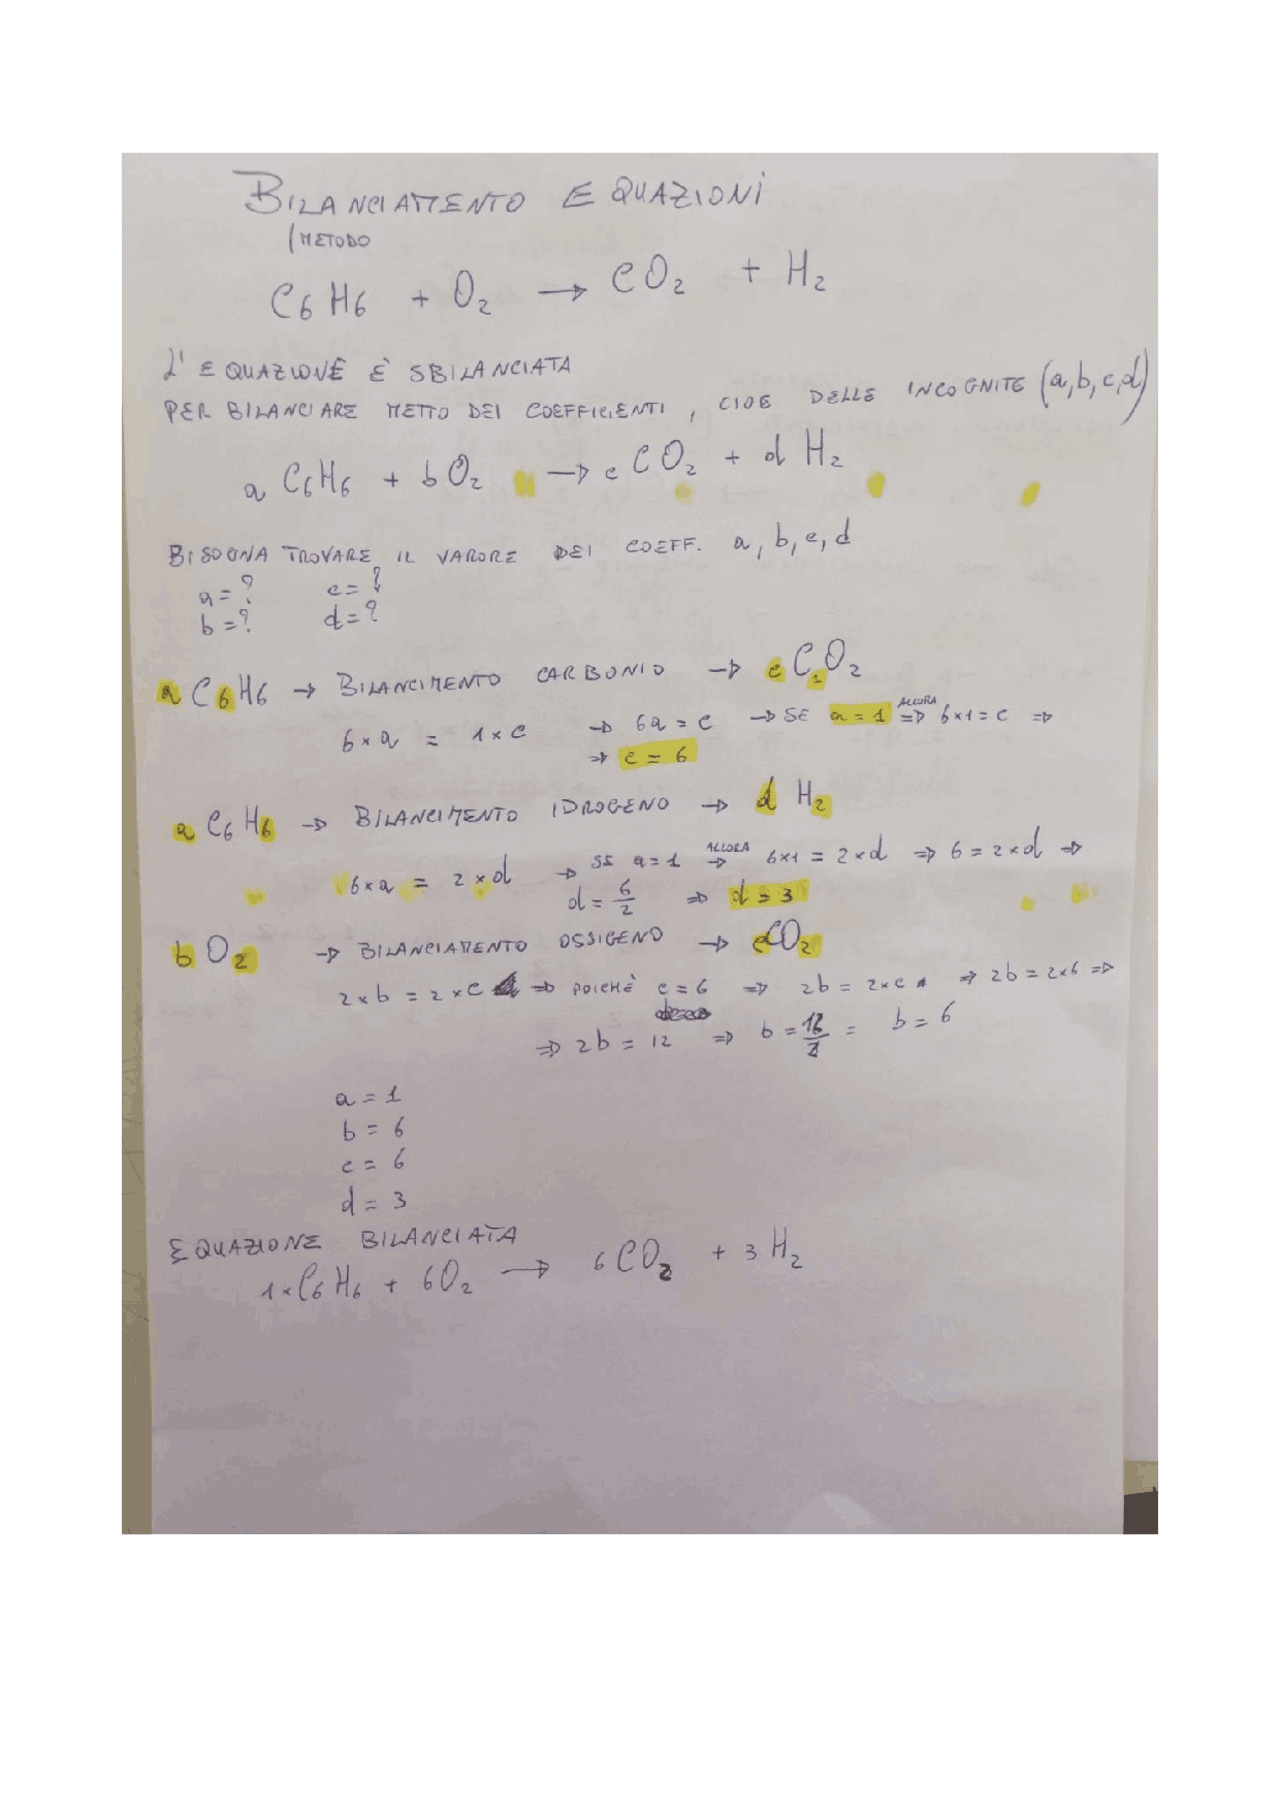 BILANCIAMENTO EQUAZIONI
METODO
C6H6 + O2 → CO2 + H2
L'EQUAZIONE È SBILANCIATA
PER BILANCIARE METTO DEI COEFFICIENTI, CIOE DELLE INCOGNITE (a,b,c,d)
a C6H6 + b O2 → c CO2 + d H2
BISOGNA TROVARE IL VARORE DEI COEFF. a, b, c, d
a = ? c = ?
b = ? d = ?
a C6H6 → BILANCIMENTO CARBONIO → c C1O2
6×a = 1×c → 6a = c → SE a = 1 ALLORA ⇒ 6×1 = c ⇒
⇒ c = 6
a C6H6 → BILANCIMENTO IDROGENO → d H2
6×a = 2×d → SE a = 1 ALLORA → 6×1 = 2×d ⇒ 6 = 2×d ⇒
d = 6/2 ⇒ d = 3
b O2 → BILANCIAMENTO OSSIGENO → cCO2
2×b = 2×c ⇒ POICHÈ c = 6 ⇒ 2b = 2×c ⇒ 2b = 2×6 ⇒
⇒ 2b = 12 ⇒ b = 12/2 = b = 6
a = 1
b = 6
c = 6
d = 3
EQUAZIONE BILANCIATA
1×C6H6 + 6O2 → 6CO2 + 3H2